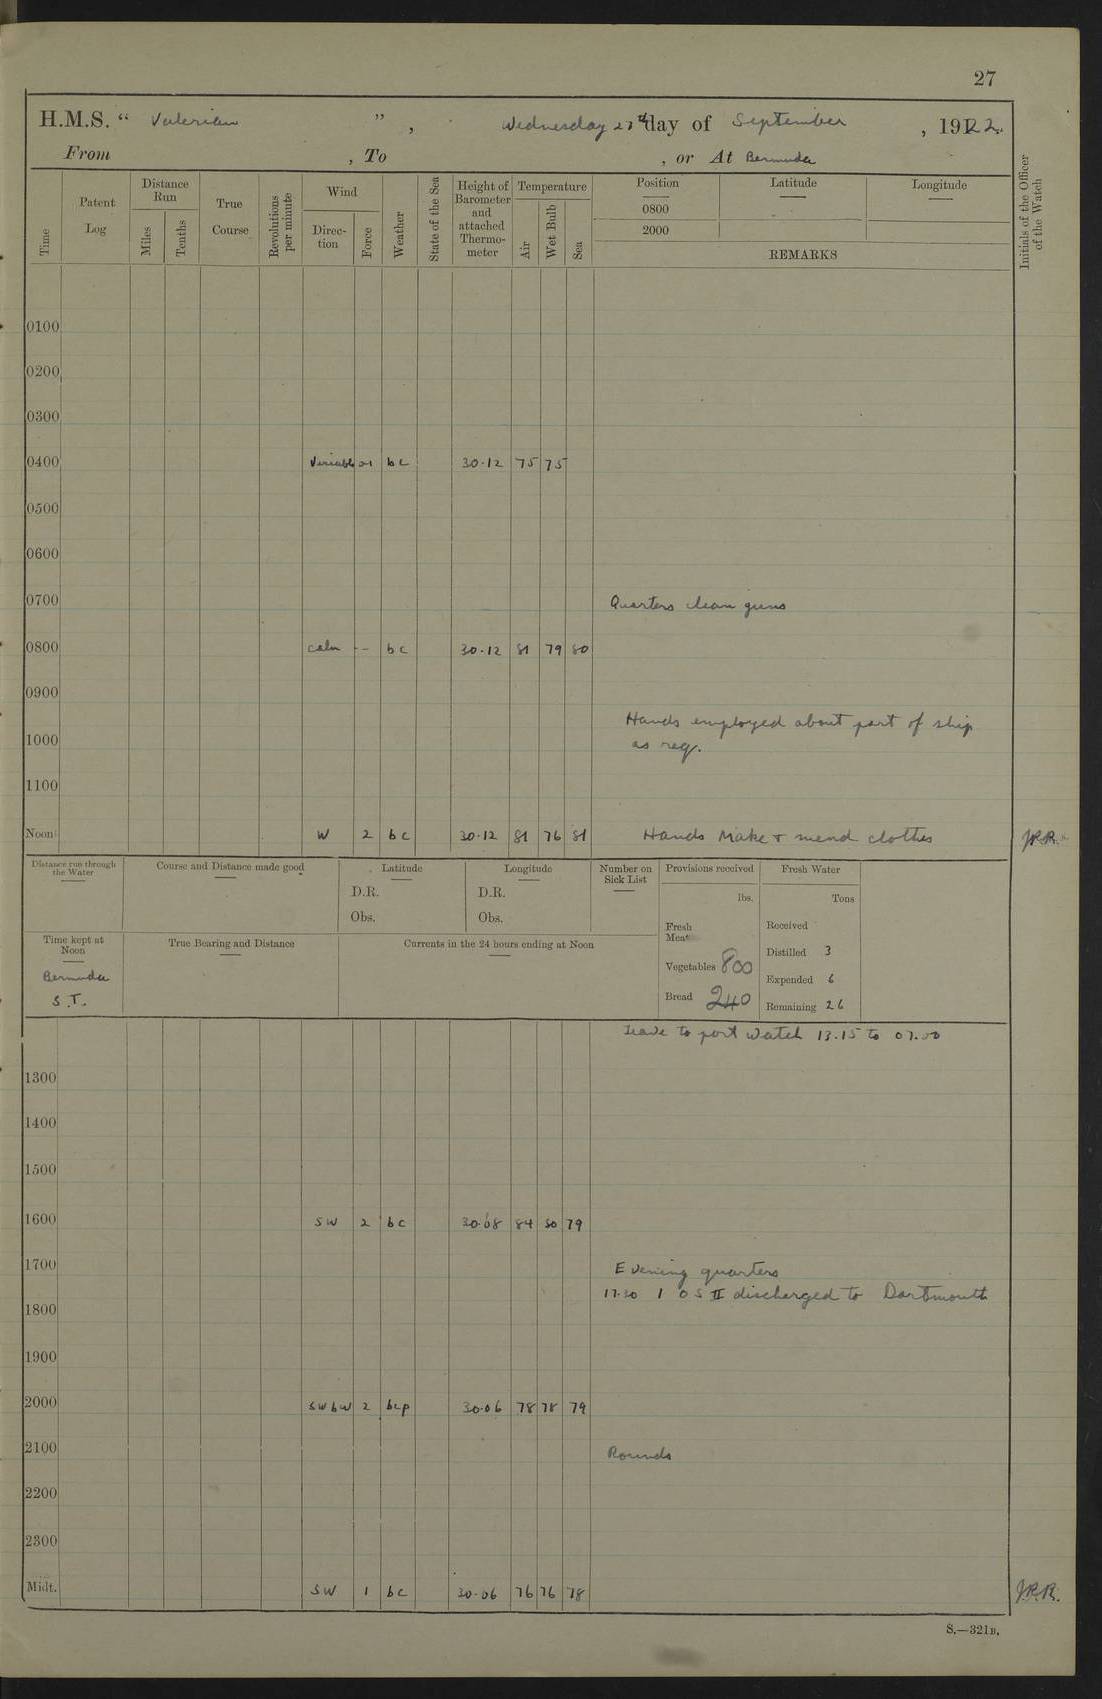 27
H.M.S. “ Valerian ” , Wednesday 27th day of September , 1922.
From , To , or At Bermuda
Time
Patent Log
Distance Run
Miles
Tenths
True Course
Revolutions per minute
Wind
Direction
Force
Weather
State of the Sea
Height of Barometer and attached Thermometer
Temperature
Air
Wet Bulb
Sea
Position Latitude Longitude
0800
2000
REMARKS
Initials of the Officer of the Watch
0100
0200
0300
0400 Variable 01 bc 30.12 75 75
0500
0600
0700 Quarters clean guns
0800 calm -- bc 30.12 81 79 80
0900
Hands employed about part of ship
1000 as req.
1100
Noon W 2 bc 30.12 81 76 81 Hands Make & mend clothes J.R.R.
Distance run through the Water
Course and Distance made good
Latitude
D.R.
Obs.
Longitude
D.R.
Obs.
Number on Sick List
Provisions received
lbs.
Fresh Meat
Vegetables 800
Bread 240
Fresh Water
Tons
Received
Distilled 3
Expended 6
Remaining 26
Time kept at Noon
Bermuda
S.T.
True Bearing and Distance
Currents in the 24 hours ending at Noon
Leave to port watch 13.15 to 07.00
1300
1400
1500
1600 SW 2 bc 30.08 84 80 79
1700 Evening quarters
17.30 1 OS II discharged to Dartmouth
1800
1900
2000 SWbW 2 bcp 30.06 78 78 79
2100 Rounds
2200
2300
Midt. SW 1 bc 30.06 76 76 78 J.R.R.
S.—321B.